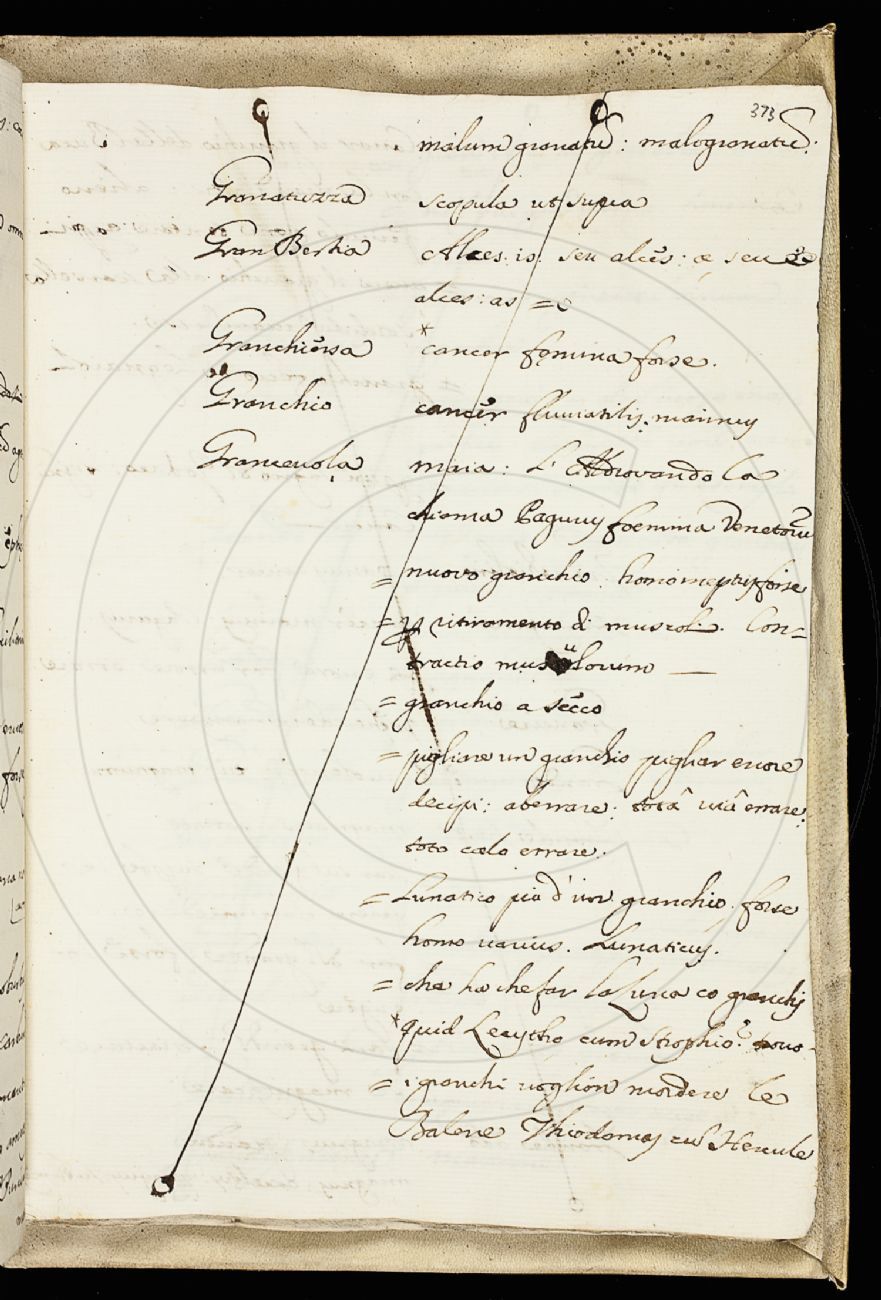 373
malum granatũ: malogranatũ.
Granatuzza scopula ut supra
Gran Bestia Alces. is. seu alces: æ seu
alces: as =
Granchiessa *cancer fęmina forse.
Granchio cancer fluviatilis. marinus
Grancevola maia: L'Aldrovando la
chiama Pagurus foemina Venetorũ
= nuovo granchio. homo ineptus forse
= ritiramento di muscoli. Con=
tractio musculorum —
= granchio a secco
= pigliare un granchio pigliar errore
decipi: aberrare: totâ viâ errare:
toto cælo errare.
= Lunatico più d'un granchio. forse
homo varius. Lunaticus.
= che ha che far la Luna co granchi
*quid Lecytho cum Strophio?
= i granchi voglion mordere le
Balene Thiodamas cũ Hercule